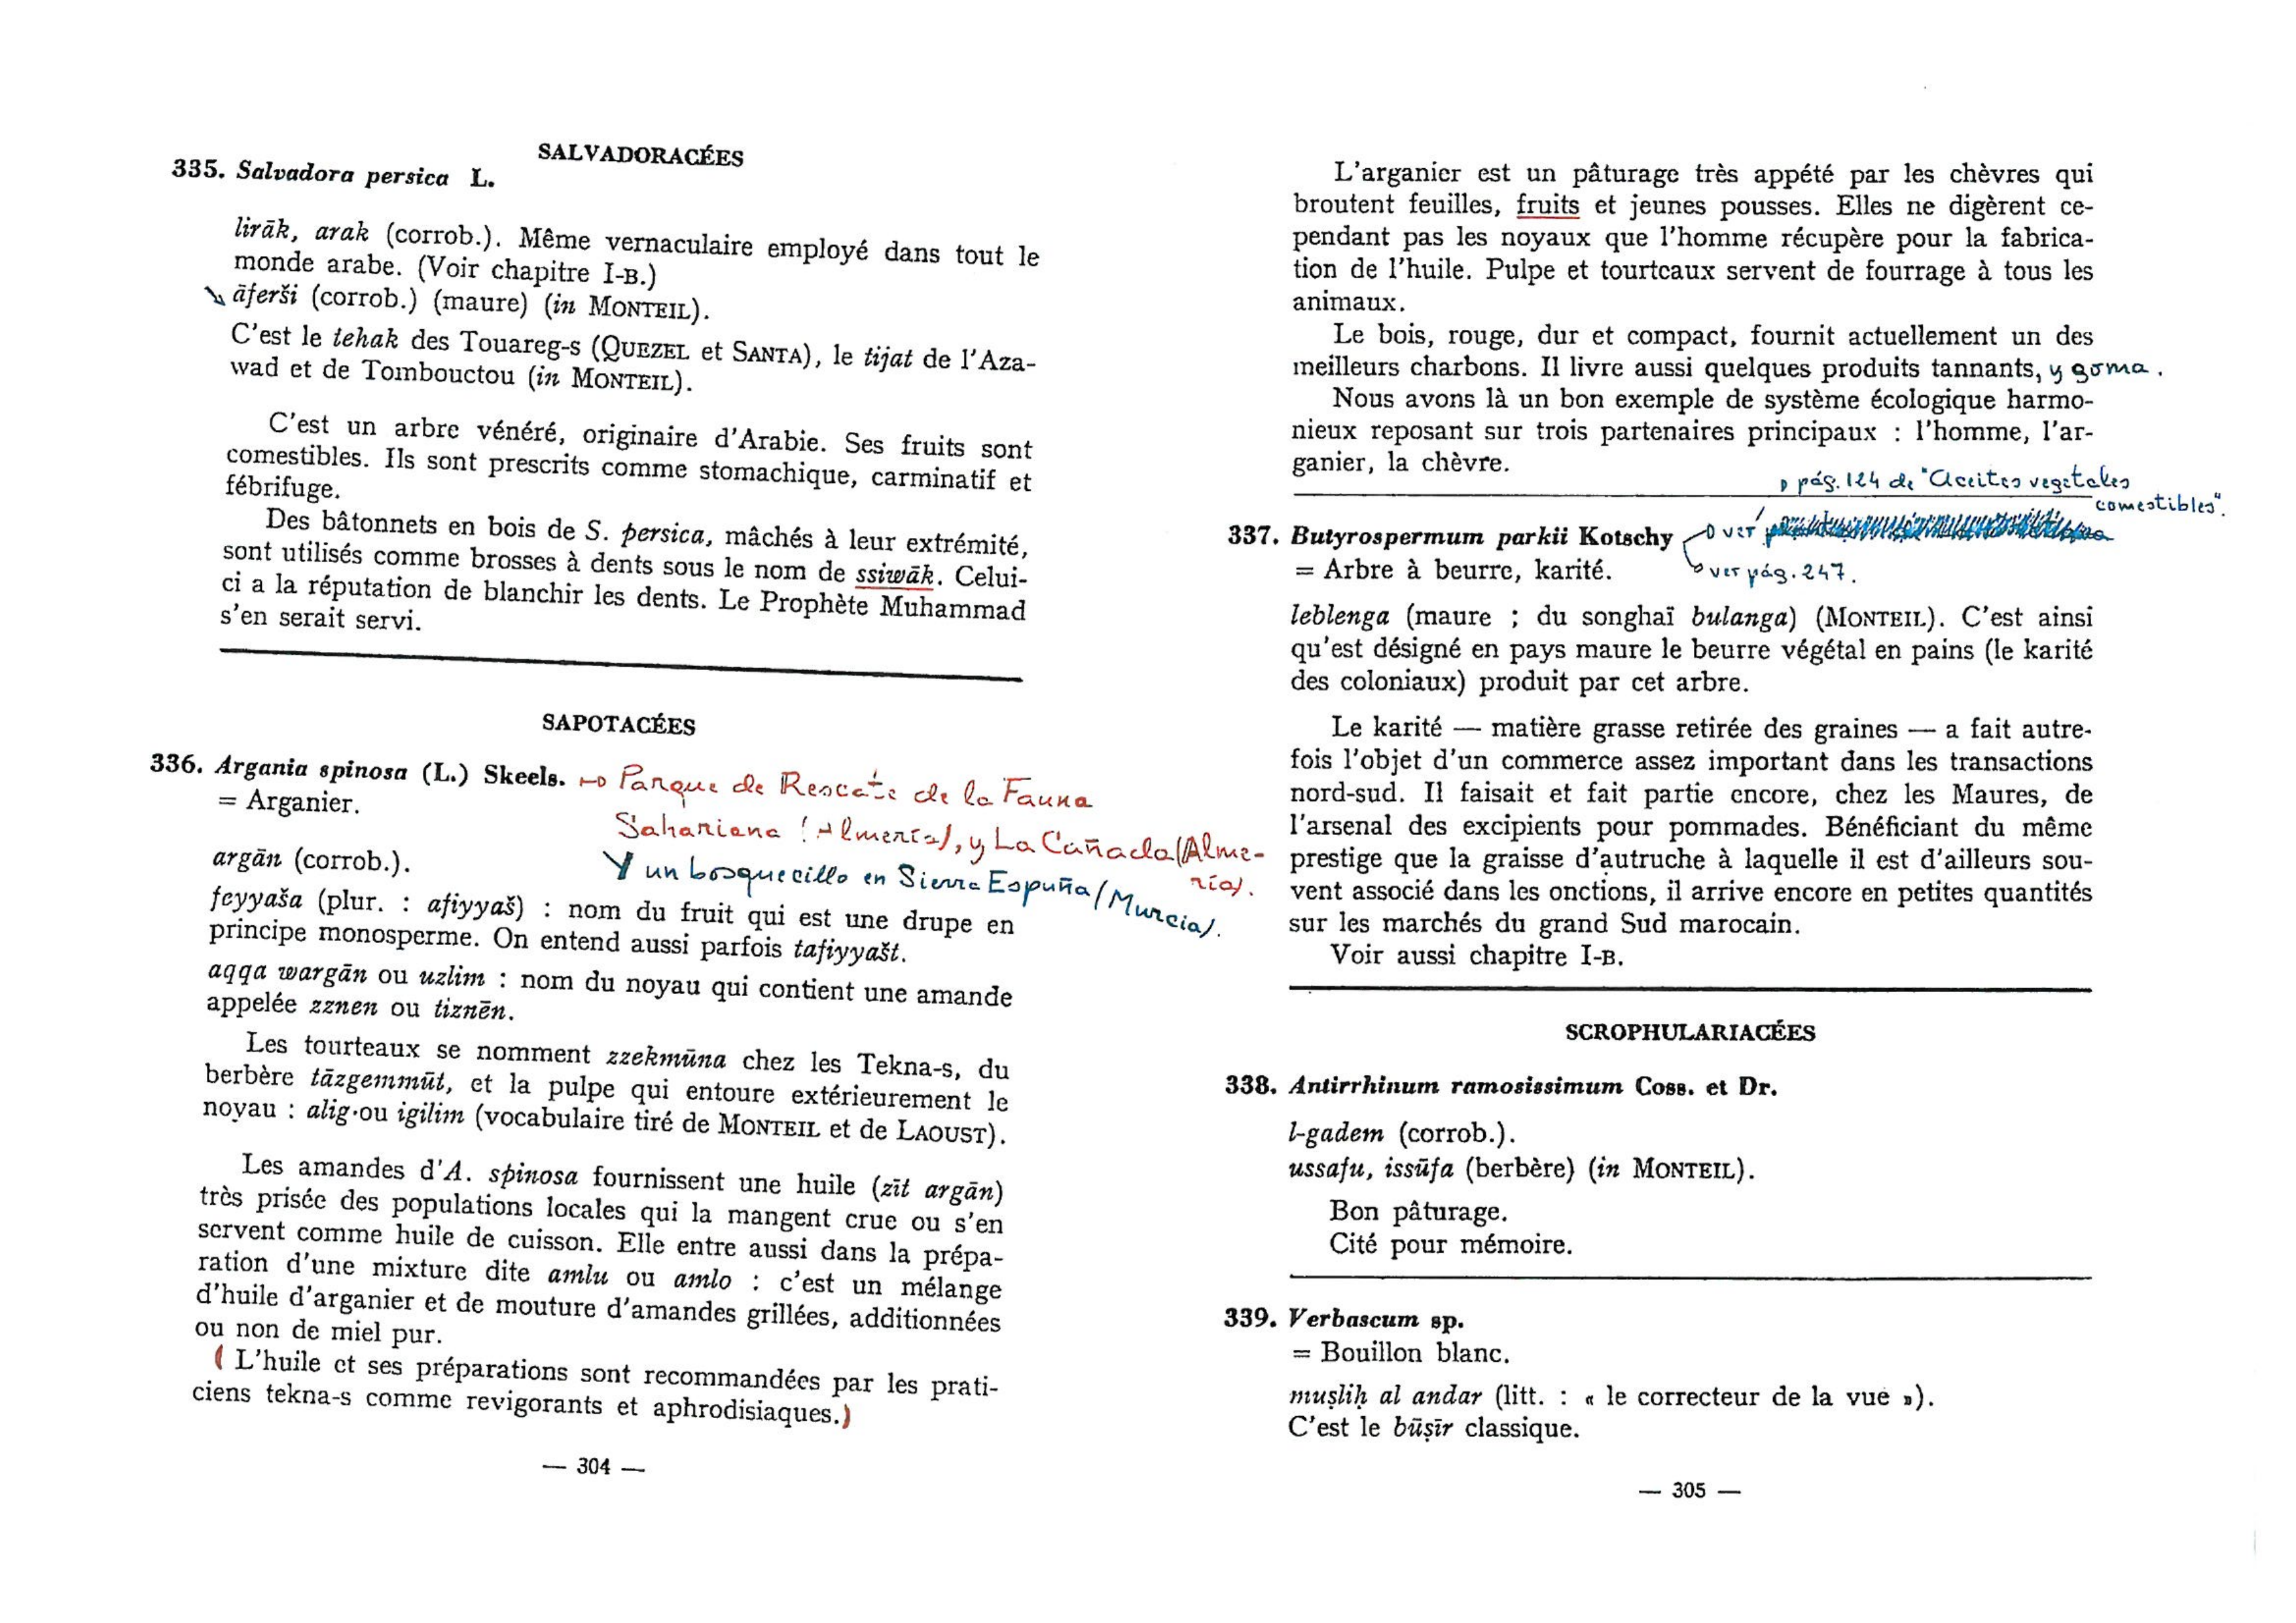 SALVADORACÉES
335. Salvadora persica L.
lirāk, arak (corrob.). Même vernaculaire employé dans tout le
monde arabe. (Voir chapitre I-B.)
āferši (corrob.) (maure) (in MONTEIL).
C'est le tehak des Touareg-s (QUEZEL et SANTA), le tijat de l'Aza-
wad et de Tombouctou (in MONTEIL).
C'est un arbre vénéré, originaire d'Arabie. Ses fruits sont
comestibles. Ils sont prescrits comme stomachique, carminatif et
fébrifuge.
Des bâtonnets en bois de S. persica, mâchés à leur extrémité,
sont utilisés comme brosses à dents sous le nom de ssiwāk. Celui-
ci a la réputation de blanchir les dents. Le Prophète Muhammad
s'en serait servi.
SAPOTACÉES
336. Argania spinosa (L.) Skeels. → Parque de Rescate de la Fauna
= Arganier.
Sahariana (Almería), y La Cañada (Alme-
ría).
argān (corrob.).
Y un bosquecillo en Sierra Espuña (Murcia).
feyyaša (plur. : afiyyaš) : nom du fruit qui est une drupe en
principe monosperme. On entend aussi parfois tafiyyašt.
aqqa wargān ou uzlim : nom du noyau qui contient une amande
appelée zznen ou tiznēn.
Les tourteaux se nomment zzekmūna chez les Tekna-s, du
berbère tāzgemmūt, et la pulpe qui entoure extérieurement le
noyau : alig ou igilim (vocabulaire tiré de MONTEIL et de LAOUST).
Les amandes d'A. spinosa fournissent une huile (zīt argān)
très prisée des populations locales qui la mangent crue ou s'en
servent comme huile de cuisson. Elle entre aussi dans la prépa-
ration d'une mixture dite amlu ou amlo : c'est un mélange
d'huile d'arganier et de mouture d'amandes grillées, additionnées
ou non de miel pur.
( L'huile et ses préparations sont recommandées par les prati-
ciens tekna-s comme revigorants et aphrodisiaques.)
— 304 —
L'arganier est un pâturage très appété par les chèvres qui
broutent feuilles, fruits et jeunes pousses. Elles ne digèrent ce-
pendant pas les noyaux que l'homme récupère pour la fabrica-
tion de l'huile. Pulpe et tourteaux servent de fourrage à tous les
animaux.
Le bois, rouge, dur et compact, fournit actuellement un des
meilleurs charbons. Il livre aussi quelques produits tannants, y goma.
Nous avons là un bon exemple de système écologique harmo-
nieux reposant sur trois partenaires principaux : l'homme, l'ar-
ganier, la chèvre.
pág. 124 de "Aceites vegetales
comestibles".
337. Butyrospermum parkii Kotschy → ver
= Arbre à beurre, karité. ver pág. 247.
leblenga (maure ; du songhaï bulanga) (MONTEIL). C'est ainsi
qu'est désigné en pays maure le beurre végétal en pains (le karité
des coloniaux) produit par cet arbre.
Le karité — matière grasse retirée des graines — a fait autre-
fois l'objet d'un commerce assez important dans les transactions
nord-sud. Il faisait et fait partie encore, chez les Maures, de
l'arsenal des excipients pour pommades. Bénéficiant du même
prestige que la graisse d'autruche à laquelle il est d'ailleurs sou-
vent associé dans les onctions, il arrive encore en petites quantités
sur les marchés du grand Sud marocain.
Voir aussi chapitre I-B.
SCROPHULARIACÉES
338. Antirrhinum ramosissimum Coss. et Dr.
l-gadem (corrob.).
ussafu, issūfa (berbère) (in MONTEIL).
Bon pâturage.
Cité pour mémoire.
339. Verbascum sp.
= Bouillon blanc.
muṣliḥ al andar (litt. : « le correcteur de la vue »).
C'est le būṣīr classique.
— 305 —